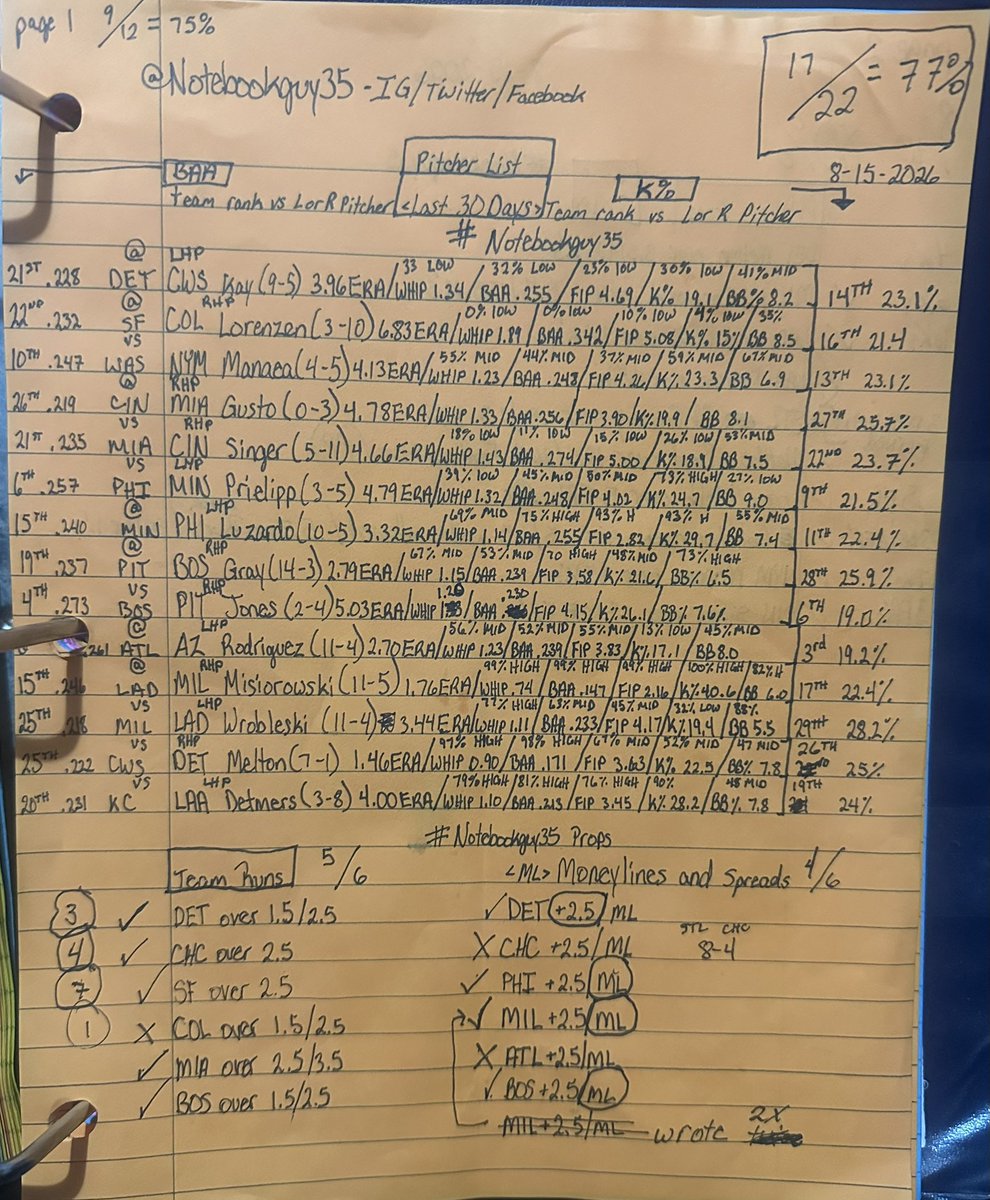 page 1 9/12 = 75%
17/22 = 77%
@Notebookguy35 - IG/Twitter/Facebook
Pitcher List
8-15-2026
BAA K%
Team rank vs L or R Pitcher <Last 30 Days> Team rank vs L or R Pitcher
# Notebookguy35
@ LHP 33 LOW / 32% LOW / 23% LOW / 30% LOW / 41% MID
21ST .228 DET CWS Kay (9-5) 3.96 ERA/WHIP 1.34/BAA .255/FIP 4.69/K% 19.1/BB% 8.2 14TH 23.1%
@ RHP 0% LOW / 0% LOW / 10% LOW / 4% LOW / 35%
22ND .232 SF COL Lorenzen (3-10) 6.83 ERA/WHIP 1.89/BAA .342/FIP 5.08/K% 15%/BB 8.5 16TH 21.4
vs 55% MID / 44% MID / 37% MID / 59% MID / 67% MID
10TH .247 WAS NYM Manaea (4-5) 4.13 ERA/WHIP 1.23/BAA .248/FIP 4.26/K% 23.3/BB 6.9 13TH 23.1%
@ RHP
26TH .219 CIN MIA Gusto (0-3) 4.78 ERA/WHIP 1.33/BAA .256/FIP 3.90/K% 19.9/ BB 8.1 27TH 25.7%
vs RHP 18% LOW / 11% LOW / 15% LOW / 26% LOW / 53% MID
21ST .235 MIA CIN Singer (5-11) 4.66 ERA/WHIP 1.43/BAA .274/FIP 5.00/K% 18.9/BB 7.5 22ND 23.7%
vs LHP 39% LOW / 45% MID / 50% MID / 73% HIGH / 27% LOW
6TH .257 PHI MIN Prielipp (3-5) 4.79 ERA/WHIP 1.32/BAA .248/FIP 4.02/K% 24.7/BB 9.0 9TH 21.5%
@ LHP 69% MID / 75% HIGH / 93% H / 93% H / 55% MID
15TH .240 MIN PHI Luzardo (10-5) 3.32 ERA/WHIP 1.14/BAA .255/FIP 2.82/K% 29.7/BB 7.4 11TH 22.4%
@ RHP 67% MID / 53% MID / 70 HIGH / 48% MID / 73% HIGH
19TH .237 PIT BOS Gray (14-3) 2.79 ERA/WHIP 1.15/BAA .239/FIP 3.58/K% 21.6/BB% 6.5 28TH 25.9%
vs RHP 1.20 .230
4TH .273 BOS PIT Jones (2-4) 5.03 ERA/WHIP /BAA /FIP 4.15/K% 26.1/BB% 7.6% 6TH 19.0%
@ LHP 56% MID / 52% MID / 55% MID / 13% LOW / 45% MID
.261 ATL AZ Rodriguez (11-4) 2.70 ERA/WHIP 1.23/BAA .239/FIP 3.83/K% 17.1/BB 8.0 3rd 19.2%
@ RHP 99% HIGH / 99% HIGH / 99% HIGH / 100% HIGH / 82% H
15TH .246 LAD MIL Misiorowski (11-5) 1.76 ERA/WHIP .74/BAA .147/FIP 2.16/K% 40.6/BB 6.0 17TH 22.4%
vs LHP 77% HIGH / 63% MID / 45% MID / 32% LOW / 88%
25TH .218 MIL LAD Wrobleski (11-4) 3.44 ERA/WHIP 1.11/BAA .233/FIP 4.17/K% 19.4/BB 5.5 29TH 28.2%
vs RHP 97% HIGH / 98% HIGH / 67% MID / 52% MID / 47 MID 26TH
25TH .222 CWS DET Melton (7-1) 1.46 ERA/WHIP 0.90/BAA .171/FIP 3.63/K% 22.5/BB% 7.8 25%
vs LHP 79% HIGH / 81% HIGH / 76% HIGH / 90% / 48 MID 19TH
20TH .231 KC LAA Detmers (3-8) 4.00 ERA/WHIP 1.10/BAA .213/FIP 3.45/K% 28.2/BB% 7.8 24%
# Notebookguy35 Props
Team Runs 5/6 <ML> Moneylines and Spreads 4/6
3 ✓ DET over 1.5/2.5 ✓ DET +2.5/ML
4 ✓ CHC over 2.5 X CHC +2.5/ML STL CHC 8-4
7 ✓ SF over 2.5 ✓ PHI +2.5/ML
1 X COL over 1.5/2.5 ✓ MIL +2.5/ML
✓ MIA over 2.5/3.5 X ATL +2.5/ML
✓ BOS over 1.5/2.5 ✓ BOS +2.5/ML
MIL +2.5/ML wrote 2X